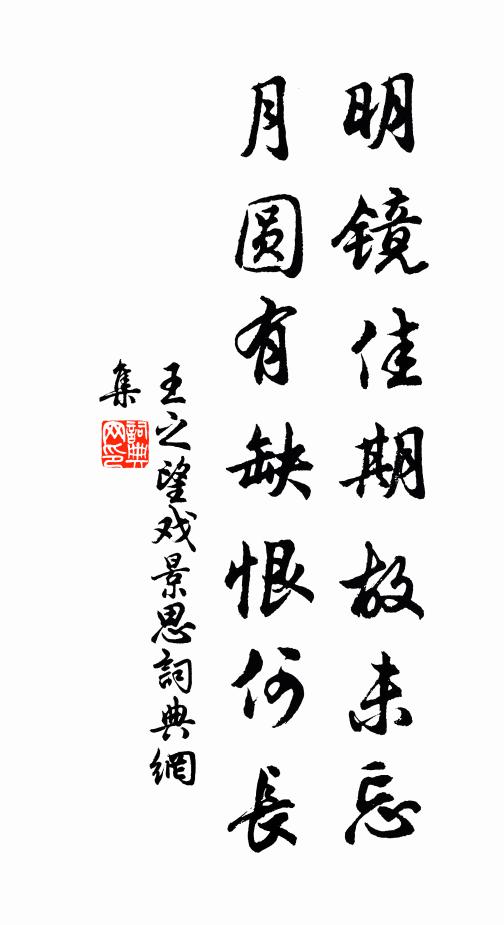 明镜佳期故未忘
月圆有缺恨何長
王之望戏景思詞典網
集
詞典网印